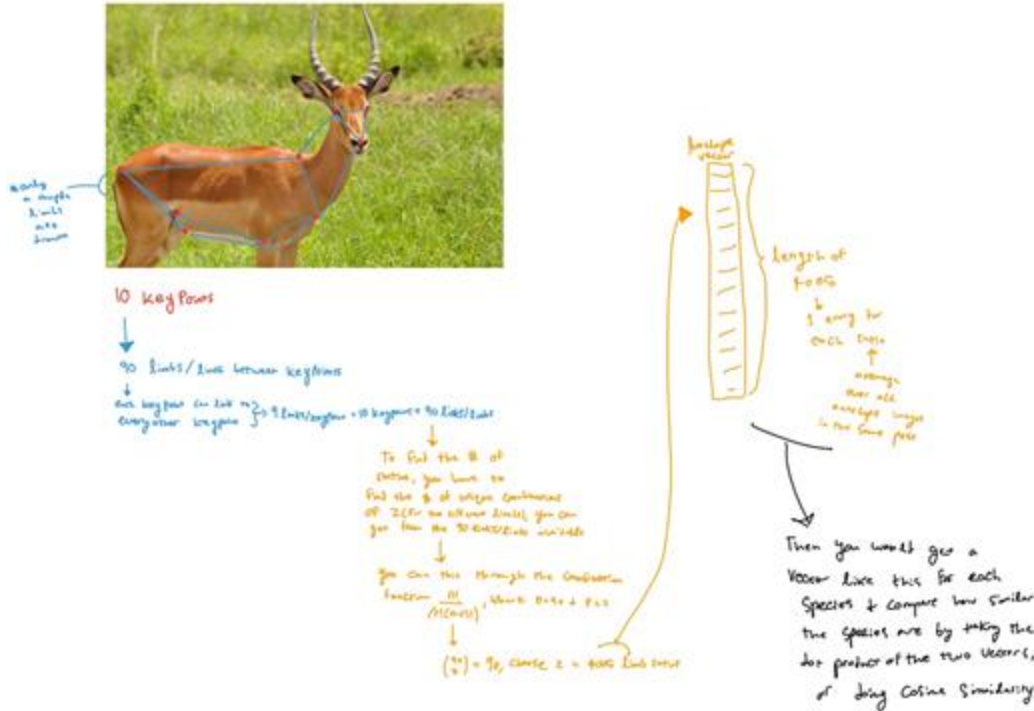 only
a couple
limbs
are
drawn
10 keypoints
90 limbs/lines between keypoints
each keypoint can link to
every other keypoint
9 links/keypoint * 10 keypoints = 90 links/limbs
To find the # of
ratios, you have to
find the # of unique combinations
of 2 (for two different limbs), you can
get from the 90 links/limbs available
you can this through the combination
function n! / r!(n-r)!, where n=90 & r=2
(90 2) = 90, choose 2 = 4005 limb ratios
Antelope
vector
length of
4005
1 entry for
each ratio
average
over all
antelope images
in the same pose
Then you would get a
vector like this for each
species & compare how similar
the species are by taking the
dot product of the two vectors,
or doing cosine similarity